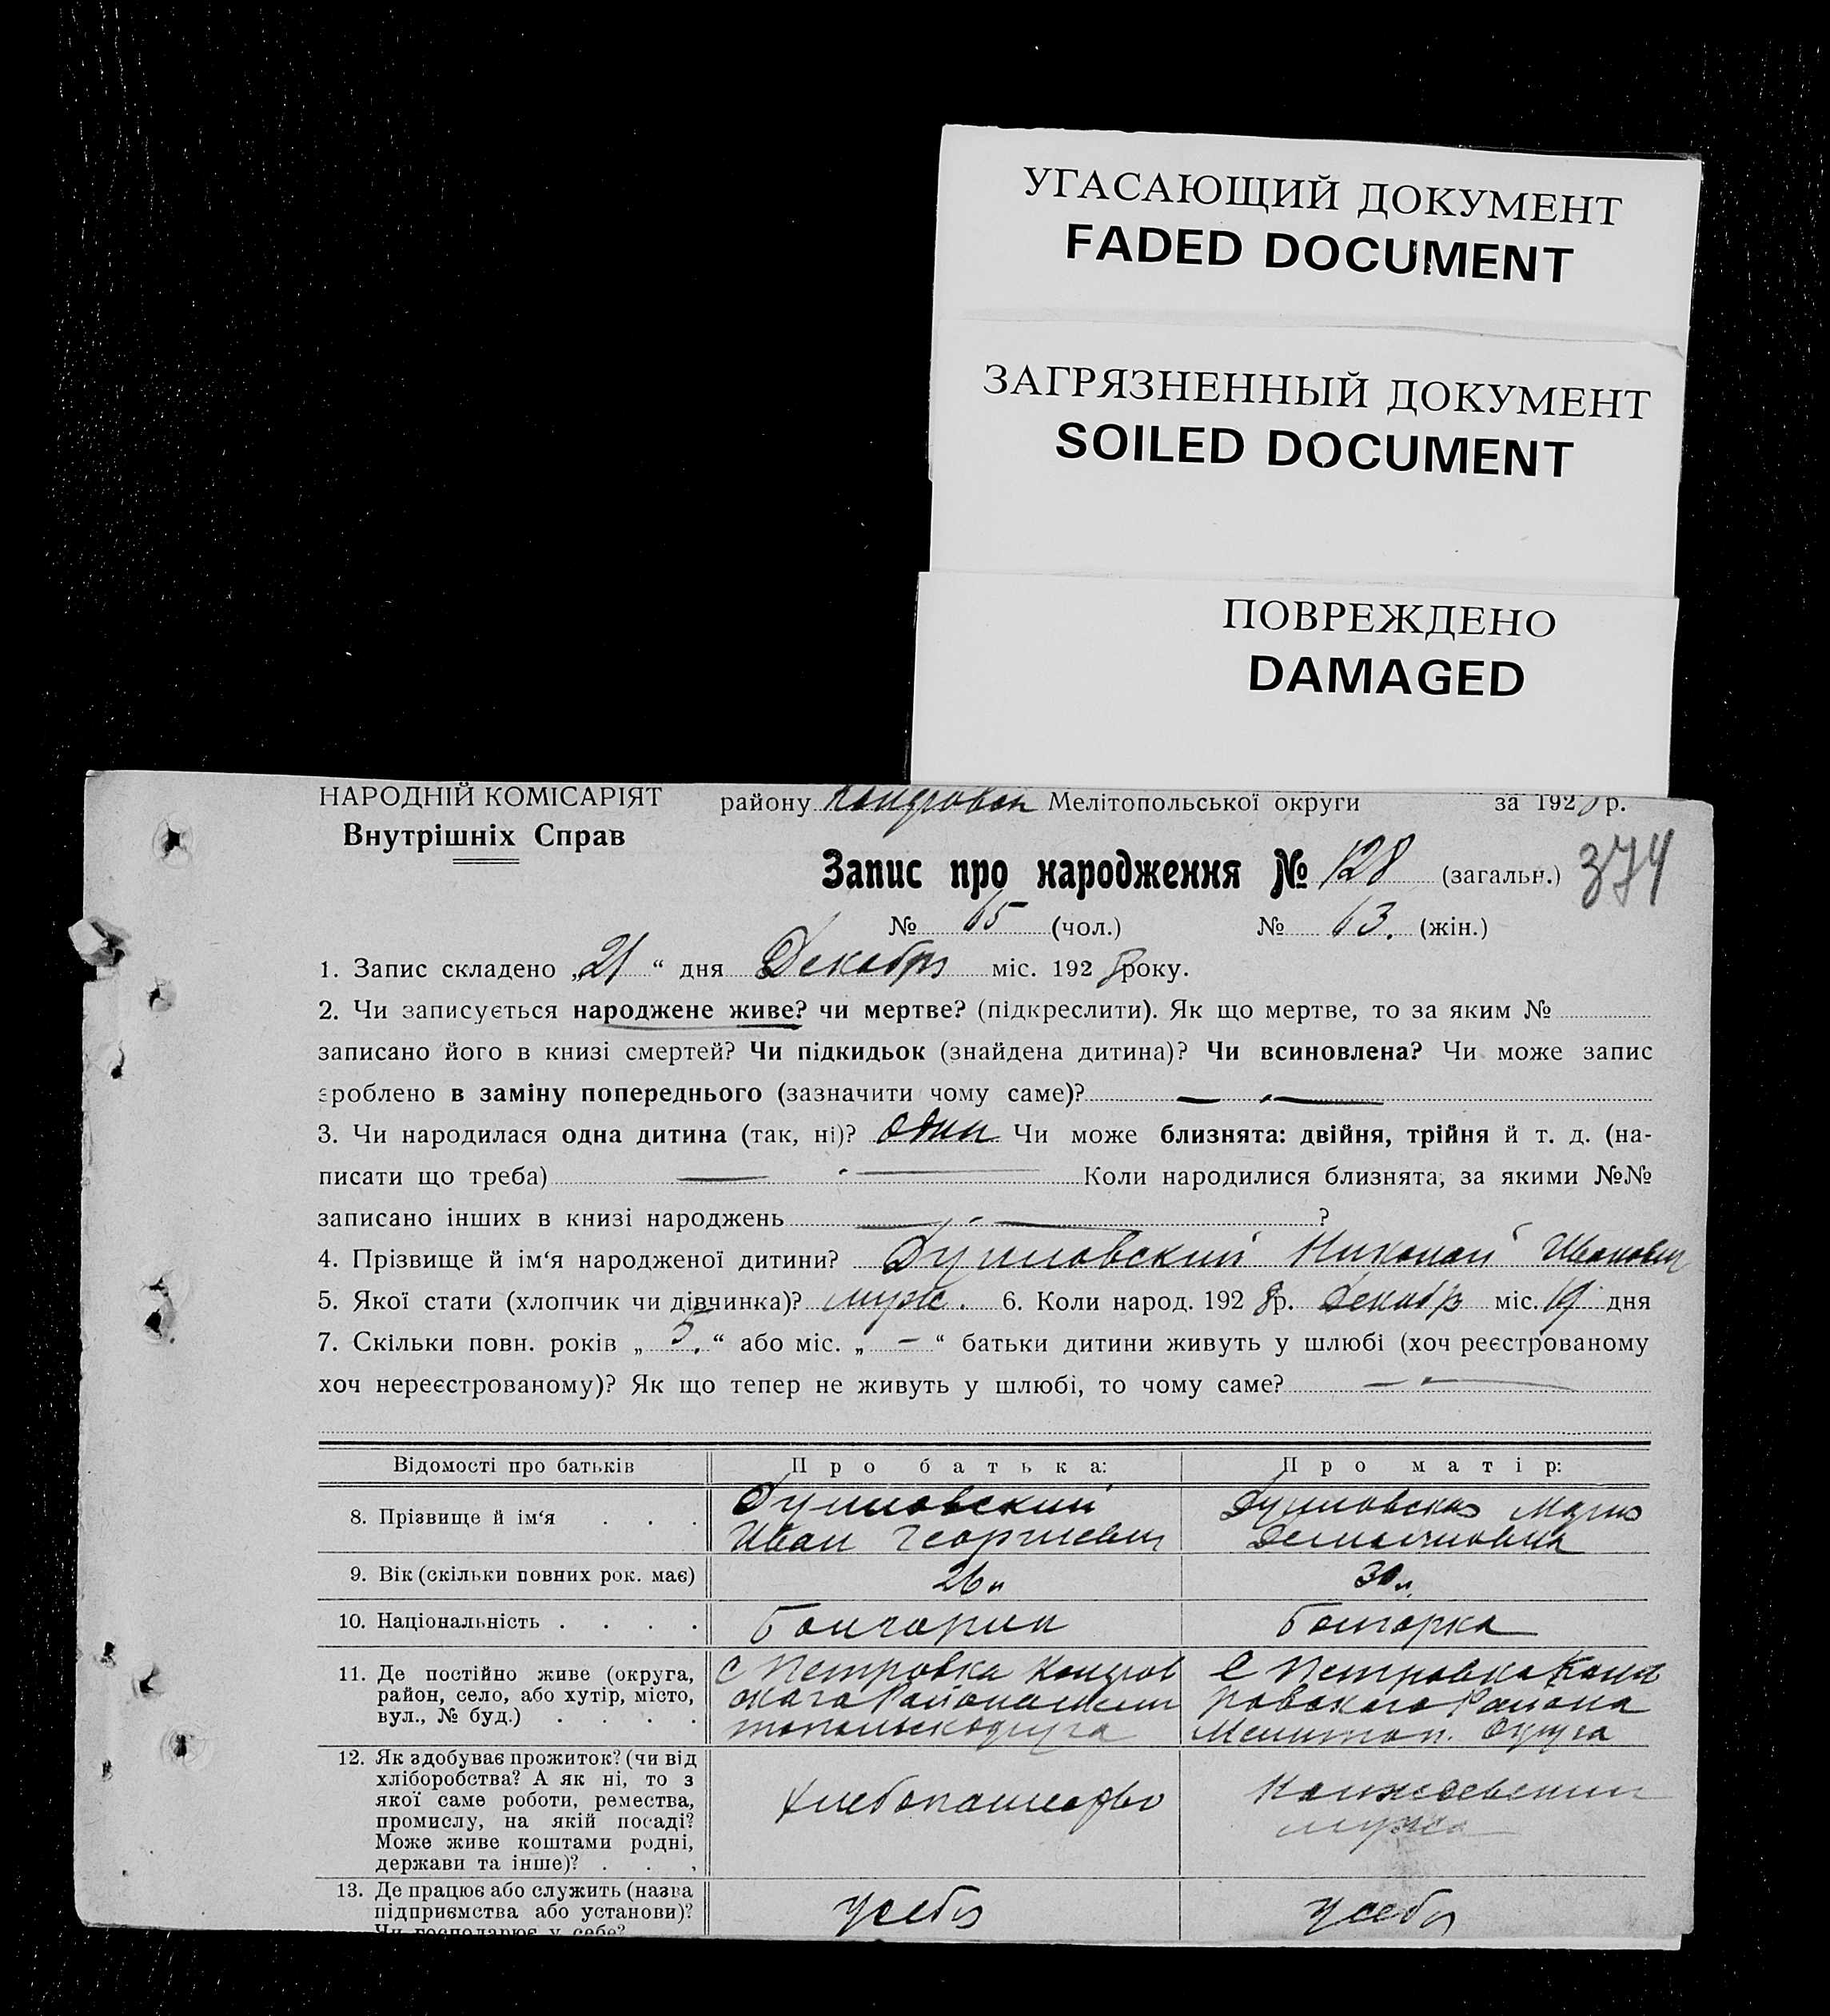 УГАСАЮЩИЙ ДОКУМЕНТ
FADED DOCUMENT
ЗАГРЯЗНЕННЫЙ ДОКУМЕНТ
SOILED DOCUMENT
ПОВРЕЖДЕНО
DAMAGED
НАРОДНІЙ КОМІСАРІЯТ району Мелітопольської округи за 1928 р.
Внутрішніх Справ
Запис про народження № 128 (загальн.) 374
№ 65 (чол.) № 63. (жін.)
1. Запис складено „21“ дня Декабря міс. 1928 року.
2. Чи записується народжене живе? чи мертве? (підкреслити). Як що мертве, то за яким №
записано його в книзі смертей? Чи підкидьок (знайдена дитина)? Чи всиновлена? Чи може запис
зроблено в заміну попереднього (зазначити чому саме)? —
3. Чи народилася одна дитина (так, ні)? один Чи може близнята: двійня, трійня й т. д. (на-
писати що треба) — Коли народилися близнята, за якими №№
записано інших в книзі народжень — ?
4. Прізвище й ім‘я народженої дитини? Николай Иванович
5. Якої стати (хлопчик чи дівчинка)? муж. 6. Коли народ. 1928 р. Декабр міс. 19 дня
7. Скільки повн. років „5.“ або міс. „—“ батьки дитини живуть у шлюбі (хоч реєстрованому
хоч нереєстрованому)? Як що тепер не живуть у шлюбі, то чому саме? —
Відомості про батьків Про батька: Про матір:
8. Прізвище й ім‘я
Иван Георгиевич
9. Вік (скільки повних рок. має) 26 л 30 л.
10. Національність Болгарин Болгарка
11. Де постійно живе (округа, С Петровка С Петровка
район, село, або хутір, місто, Района
вул., № буд.) Мелитоп. Округа
12. Як здобуває прожиток? (чи від
хліборобства? А як ні, то з
якої саме роботи, ремества, Хлебопашество
промислу, на якій посаді? мужа
Може живе коштами родні,
держави та інше)?
13. Де працює або служить (назва
підприємства або установи)? у себя у себя
Чи господарює у себе?